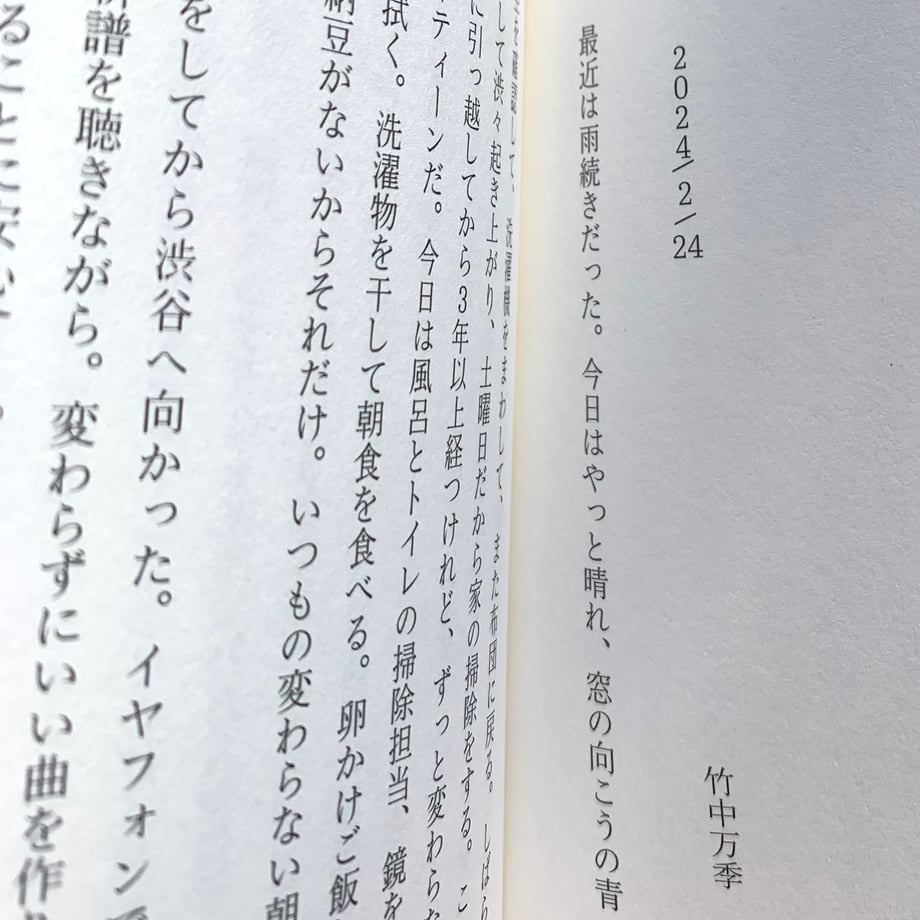 2024/2/24
竹中万季
最近は雨続きだった。今日はやっと晴れ、窓の向こうの青
を確認して、洗濯機をまわして、また布団に戻る。しばら
して渋々起き上がり、土曜日だから家の掃除をする。こ
に引っ越してから3年以上経つけれど、ずっと変わらな
ティーンだ。今日は風呂とトイレの掃除担当、鏡を
拭く。洗濯物を干して朝食を食べる。卵かけご飯
納豆がないからそれだけ。いつもの変わらない朝
をしてから渋谷へ向かった。イヤフォンで
新譜を聴きながら。変わらずにいい曲を作
ることに